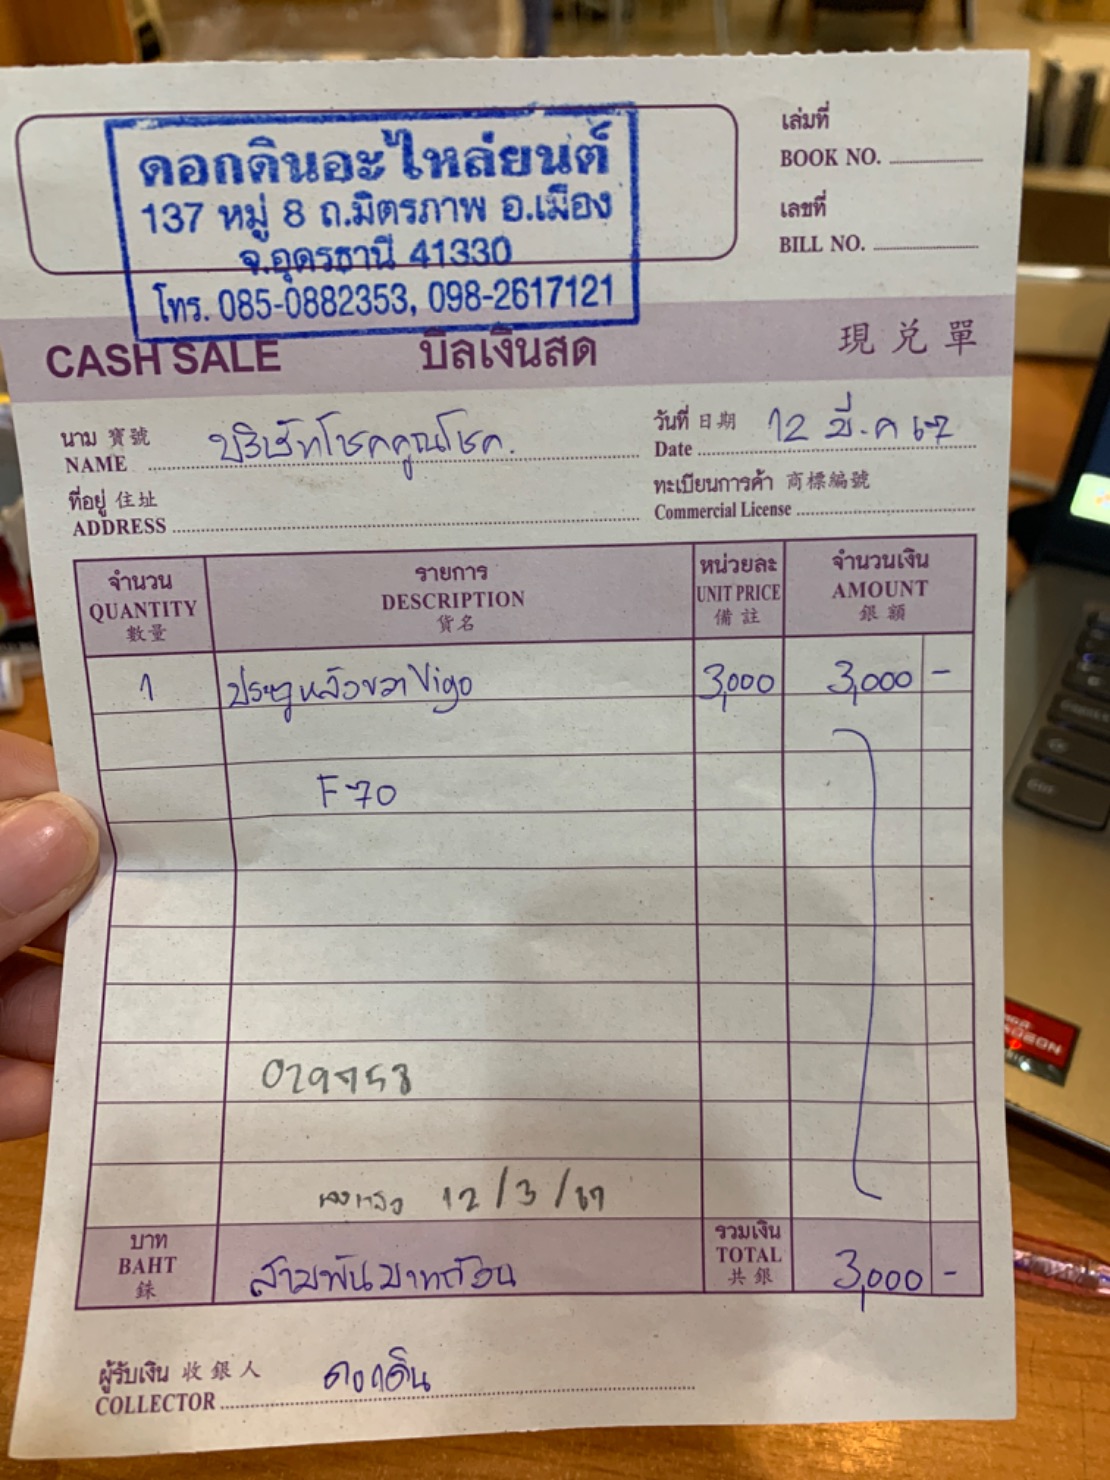 ดอกดินอะไหล่ยนต์
137 หมู่ 8 ถ.มิตรภาพ อ.เมือง
จ.อุดรธานี 41330
โทร. 085-0882353, 098-2617121
เล่มที่
BOOK NO.
เลขที่
BILL NO.
CASH SALE บิลเงินสด 現兌單
นาม 寶號
NAME บริษัทโชคคูณโชค.
วันที่ 日期
Date 12 มี.ค 67
ที่อยู่ 住址
ADDRESS
ทะเบียนการค้า 商標編號
Commercial License
จำนวน
QUANTITY
數量
รายการ
DESCRIPTION
貨名
หน่วยละ
UNIT PRICE
備註
จำนวนเงิน
AMOUNT
銀額
1 ประตูหลังขวา Vigo 3,000 3,000 -
F-70
12/3/67
บาท
BAHT
銖
สามพันบาทถ้วน
รวมเงิน
TOTAL
共銀
3,000 -
ผู้รับเงิน 收銀人
COLLECTOR ดอกดิน